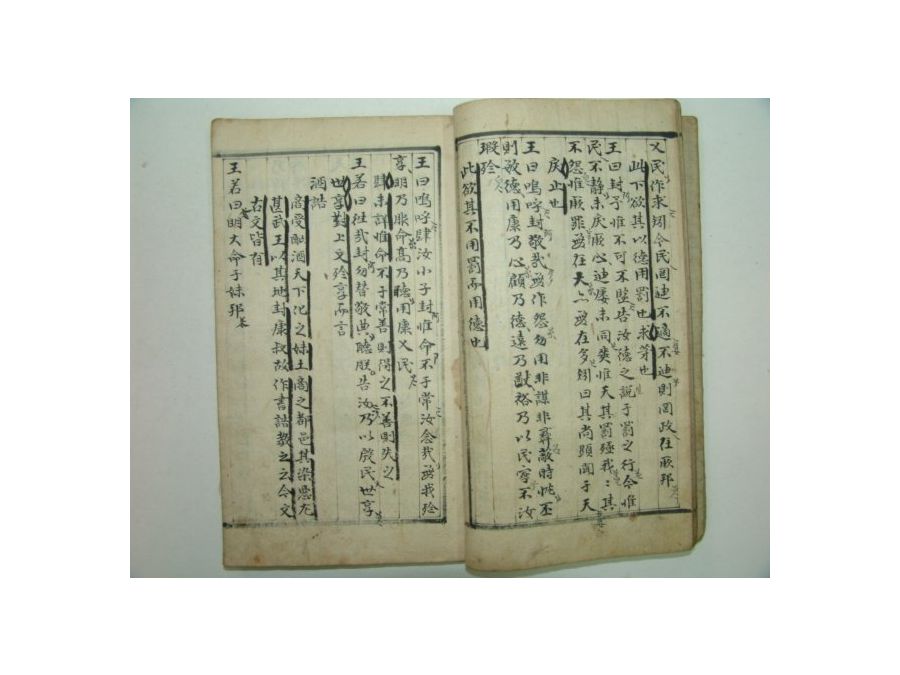 乂民作求矧今民罔迪不適不迪則罔政在厥邦
此下欲其以德用罰也求等也
王曰封予惟不可不監告汝德之說于罰之行今惟
民不静未戾厥心迪屢未同爽惟天其罰殛我〻其
不怨惟厥罪無在大亦無在多矧曰其尚顯聞于天
戾止也
王曰嗚呼封敬哉無作怨勿用非謀非彝蔽時忱丕
則敏德用康乃心顧乃德遠乃猷裕乃以民寧不汝
瑕殄
此欲其不用罰而用德也
王曰嗚呼肆汝小子封惟命不于常汝念哉無我殄
享明乃服命高乃聽用康乂民
肆未詳惟命不于常善則得之不善則失之
王若曰往哉封勿替敬典聽朕告汝乃以殷民世享
世享對上文殄享而言
酒誥
商受酗酒天下化之妹土商之都邑其染惡尤
甚武王以其地封康叔故作書誥教之云今文
古文皆有
王若曰明大命于妹邦